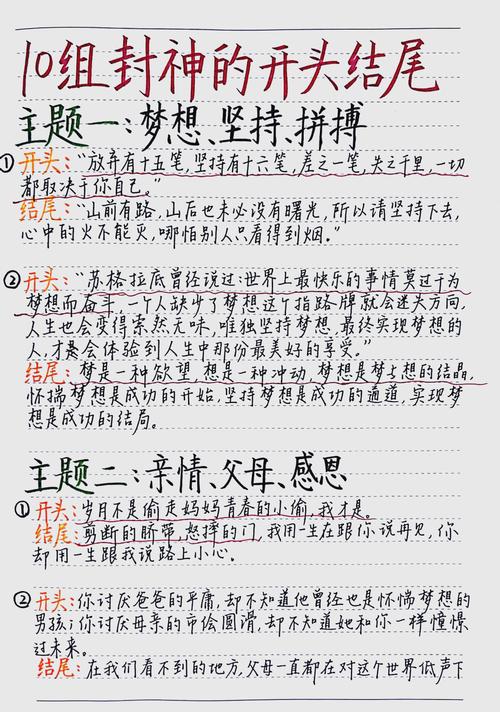 10组封神的开头结尾
主题一:梦想、坚持、拼搏
①开头:“放弃有十五笔,坚持有十六笔,差之一笔,失之千里,一切
都取决于你自己。”
结尾:“山前有路,山后也未必没有曙光,所以请坚持下去,
心中的火不能灭,哪怕别人只看得到烟。”
②开头:“苏格拉底曾经说过:世界上最快乐的事情莫过于为
梦想而奋斗。一个人缺少了梦想这个指路牌就会迷失方向,
人生也会变得索然无味,唯独坚持梦想,最终实现梦想的
人,才是会体验到人生中那份最美好的享受。”
结尾:梦是一种欲望,想是一种冲动,梦想是梦与想的结晶,
怀揣梦想是成功的开始,坚持梦想是成功的通道,实现梦
想是成功的结局。
主题二:亲情、父母、感恩
①开头:岁月不是偷走妈妈青春的小偷,我才是。
结尾:剪断的脐带,怒摔的门,我用一生在跟你说再见,你
却用一生跟我说路上小心。
②开头:你讨厌爸爸的平庸,却不知道他曾经也是怀揣梦想的
男孩;你讨厌母亲的市侩圆滑,却不知道她和你一样憧憬
过未来。
结尾:在我们看不到的地方,父母一直都在对这个世界低声下